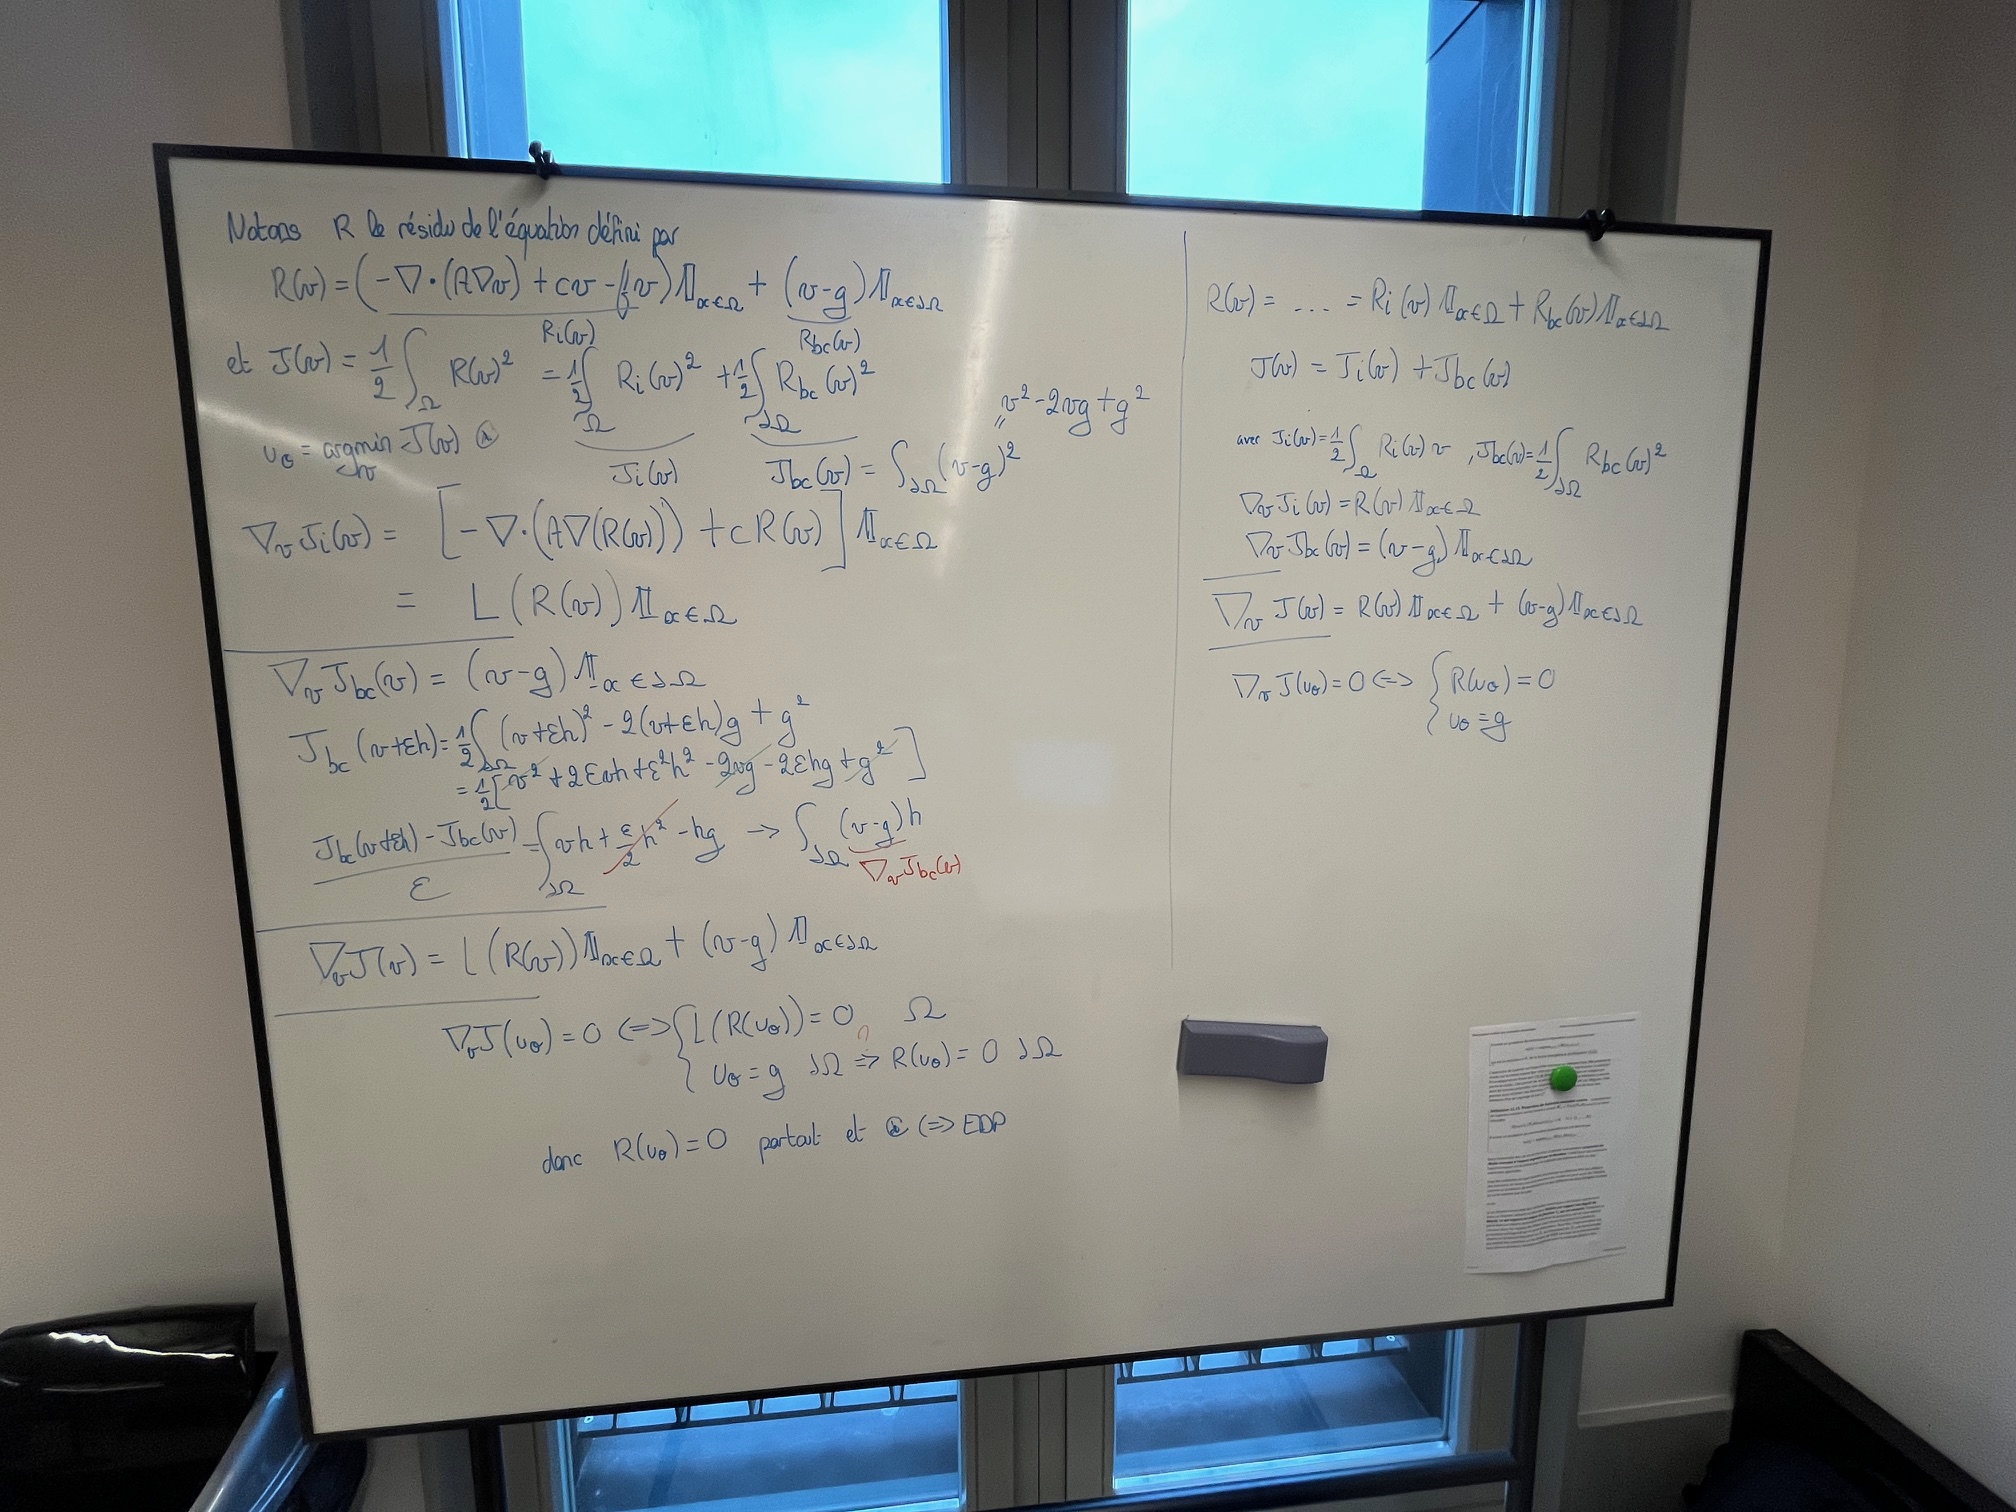 Notons R le résidu de l'équation défini par
R(v) = (-∇·(A∇v) + cv - f v) 𝟙_{x∈Ω} + (v-g) 𝟙_{x∈∂Ω}
R_i(v) R_bc(v)
et J(v) = 1/2 ∫_Ω R(v)² = 1/2 ∫_Ω R_i(v)² + 1/2 ∫_{∂Ω} R_bc(v)²
v² - 2vg + g²
u_θ = argmin_v J(v)
J_i(v) J_bc(v) = ∫_{∂Ω} (v-g)²
∇_v J_i(v) = [-∇·(A∇(R(v))) + cR(v)] 𝟙_{x∈Ω}
= L(R(v)) 𝟙_{x∈Ω}
∇_v J_bc(v) = (v-g) 𝟙_{x∈∂Ω}
J_bc(v+εh) = 1/2 ∫_{∂Ω} (v+εh)² - 2(v+εh)g + g²
= 1/2 [v² + 2εvh + ε²h² - 2vg - 2εhg + g²]
(J_bc(v+εh) - J_bc(v))/ε = ∫_{∂Ω} vh + ε/2 h² - hg → ∫_{∂Ω} (v-g)h
∇_v J_bc(v)
∇_v J(v) = L(R(v)) 𝟙_{x∈Ω} + (v-g) 𝟙_{x∈∂Ω}
∇_v J(u_θ) = 0 ⇔ { L(R(u_θ)) = 0 Ω
u_θ = g ∂Ω ⇒ R(u_θ) = 0 ∂Ω
?
donc R(u_θ) = 0 partout et ⇔ EDP
R(v) = ... = R_i(v) 𝟙_{x∈Ω} + R_bc(v) 𝟙_{x∈∂Ω}
J(v) = J_i(v) + J_bc(v)
avec J_i(v) = 1/2 ∫_Ω R_i(v) v , J_bc(v) = 1/2 ∫_{∂Ω} R_bc(v)²
∇_v J_i(v) = R(v) 𝟙_{x∈Ω}
∇_v J_bc(v) = (v-g) 𝟙_{x∈∂Ω}
∇_v J(v) = R(v) 𝟙_{x∈Ω} + (v-g) 𝟙_{x∈∂Ω}
∇_v J(u_θ) = 0 ⇔ { R(u_θ) = 0
u_θ = g